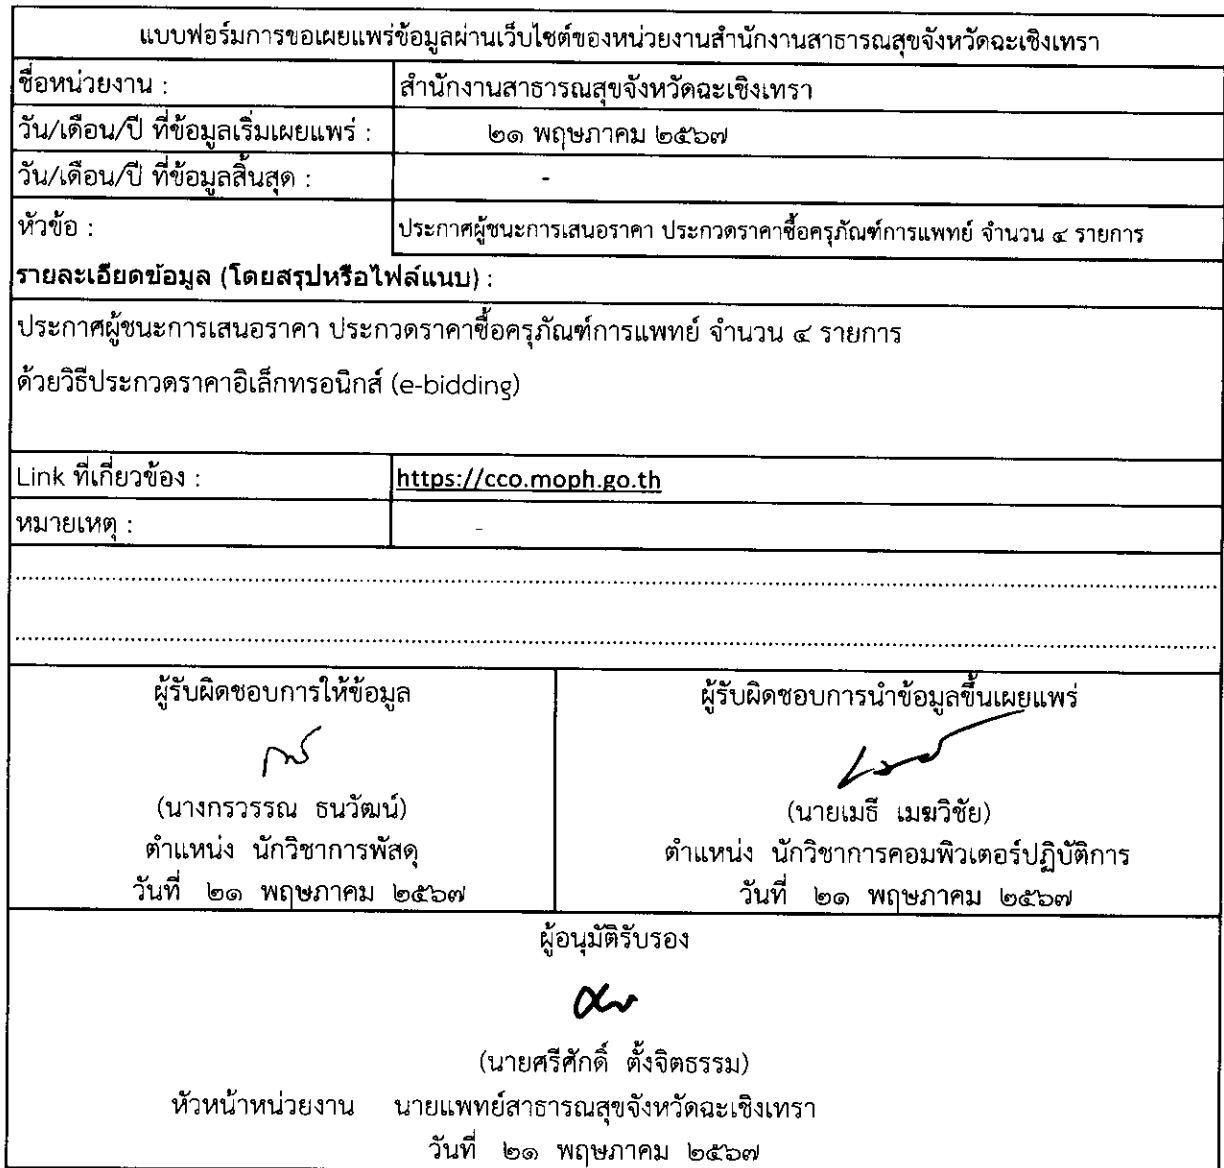 แบบฟอร์มการขอเผยแพร่ข้อมูลผ่านเว็บไซต์ของหน่วยงานสำนักงานสาธารณสุขจังหวัดฉะเชิงเทรา
ชื่อหน่วยงาน : สำนักงานสาธารณสุขจังหวัดฉะเชิงเทรา
วัน/เดือน/ปี ที่ข้อมูลเริ่มเผยแพร่ : ๒๑ พฤษภาคม ๒๕๖๗
วัน/เดือน/ปี ที่ข้อมูลสิ้นสุด : -
หัวข้อ : ประกาศผู้ชนะการเสนอราคา ประกวดราคาซื้อครุภัณฑ์การแพทย์ จำนวน ๔ รายการ
รายละเอียดข้อมูล (โดยสรุปหรือไฟล์แนบ) :
ประกาศผู้ชนะการเสนอราคา ประกวดราคาซื้อครุภัณฑ์การแพทย์ จำนวน ๔ รายการ
ด้วยวิธีประกวดราคาอิเล็กทรอนิกส์ (e-bidding)
Link ที่เกี่ยวข้อง : https://cco.moph.go.th
หมายเหตุ : -
ผู้รับผิดชอบการให้ข้อมูล ผู้รับผิดชอบการนำข้อมูลขึ้นเผยแพร่
(นางกรวรรณ ธนวัฒน์) (นายเมธี เมฆวิชัย)
ตำแหน่ง นักวิชาการพัสดุ ตำแหน่ง นักวิชาการคอมพิวเตอร์ปฏิบัติการ
วันที่ ๒๑ พฤษภาคม ๒๕๖๗ วันที่ ๒๑ พฤษภาคม ๒๕๖๗
ผู้อนุมัติรับรอง
(นายศรีศักดิ์ ตั้งจิตธรรม)
หัวหน้าหน่วยงาน นายแพทย์สาธารณสุขจังหวัดฉะเชิงเทรา
วันที่ ๒๑ พฤษภาคม ๒๕๖๗